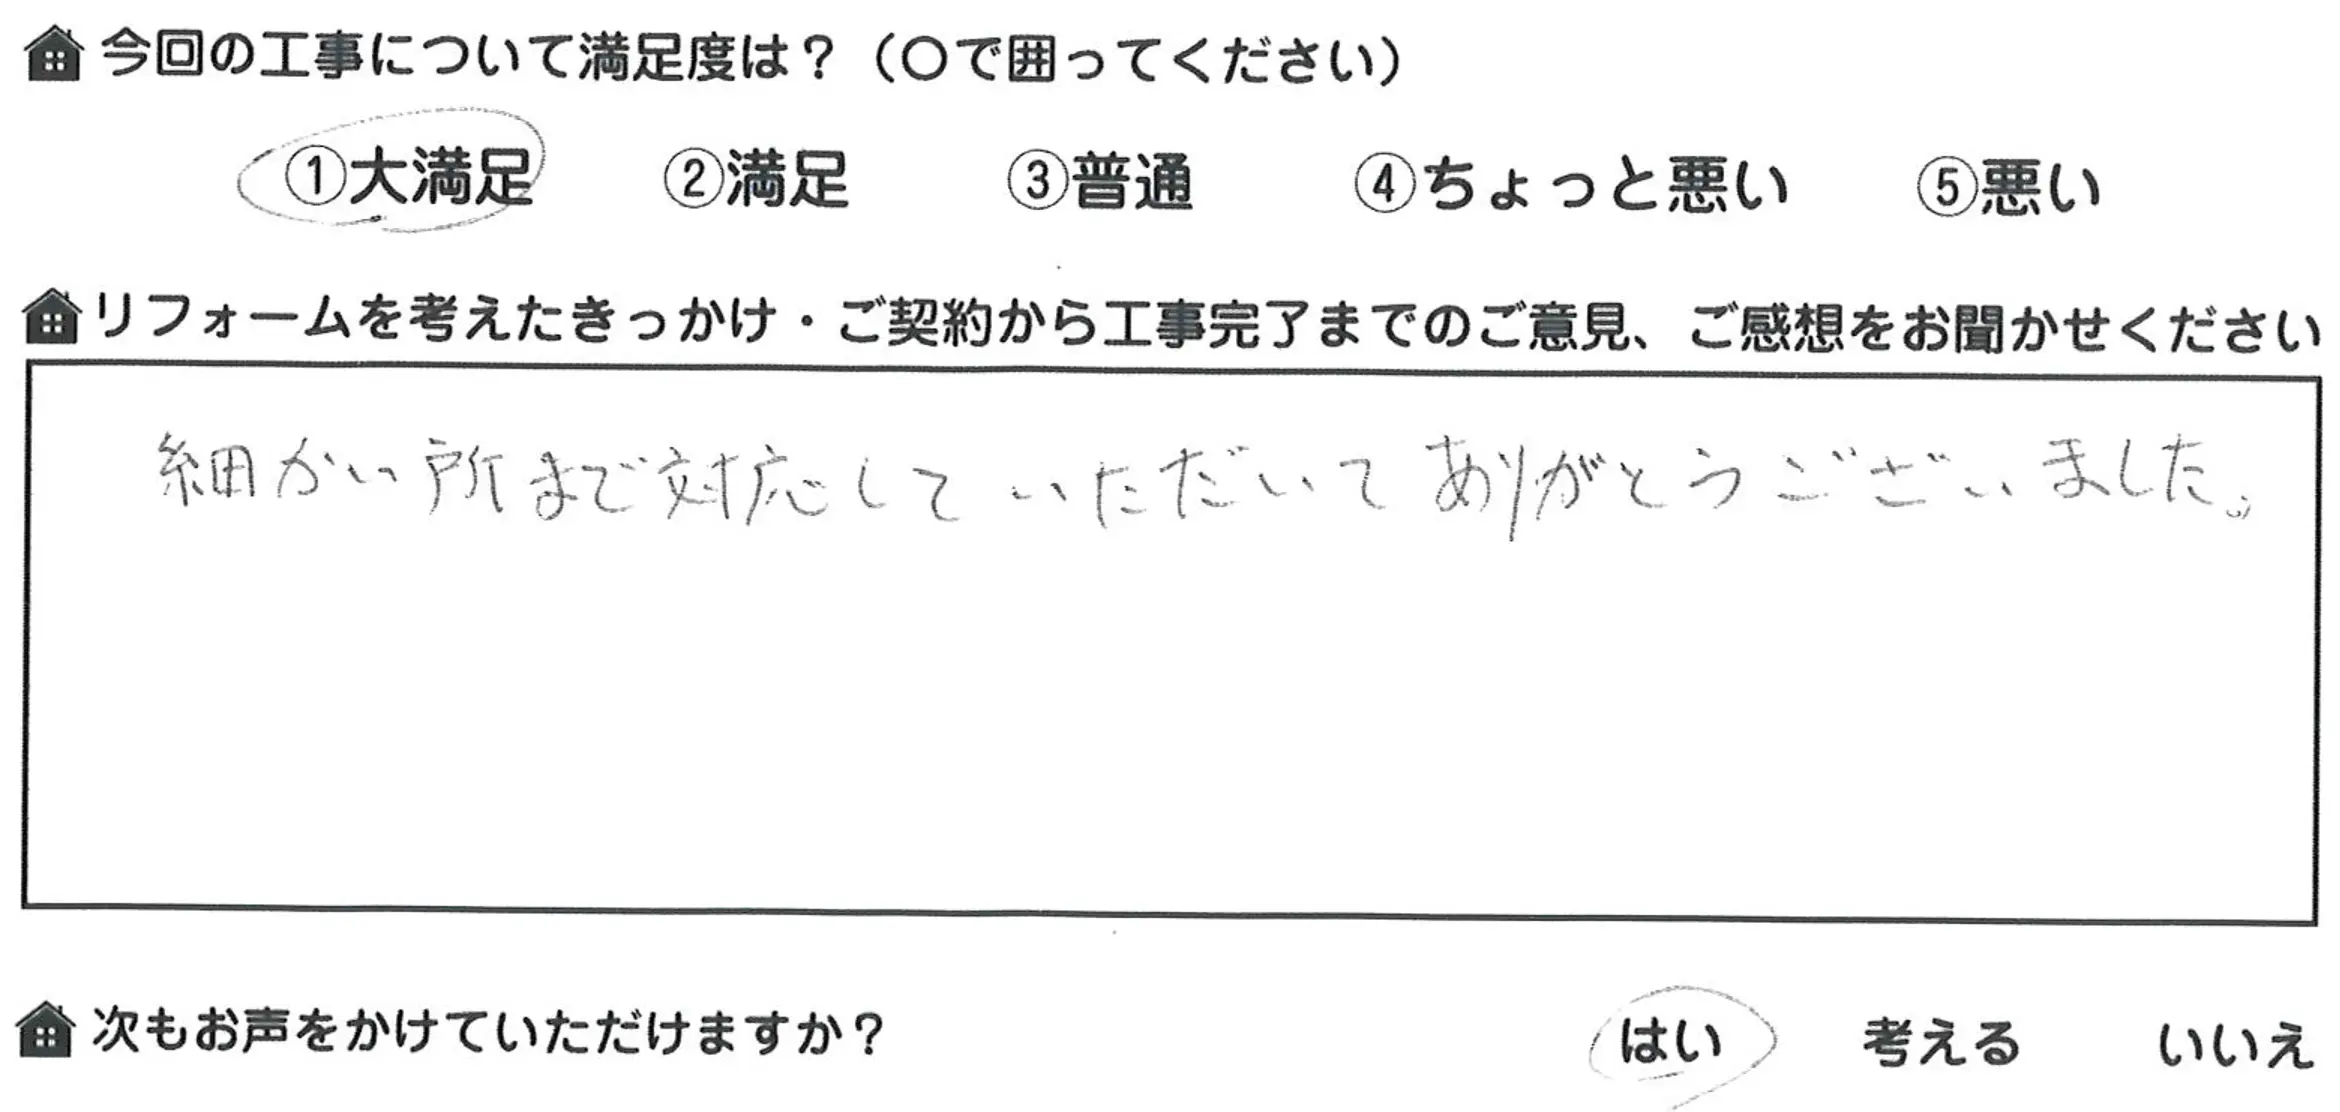 今回の工事について満足度は？（〇で囲ってください）
①大満足 ②満足 ③普通 ④ちょっと悪い ⑤悪い
リフォームを考えたきっかけ・ご契約から工事完了までのご意見、ご感想をお聞かせください
細かい所まで対応していただいてありがとうございました。
次もお声をかけていただけますか？ はい 考える いいえ